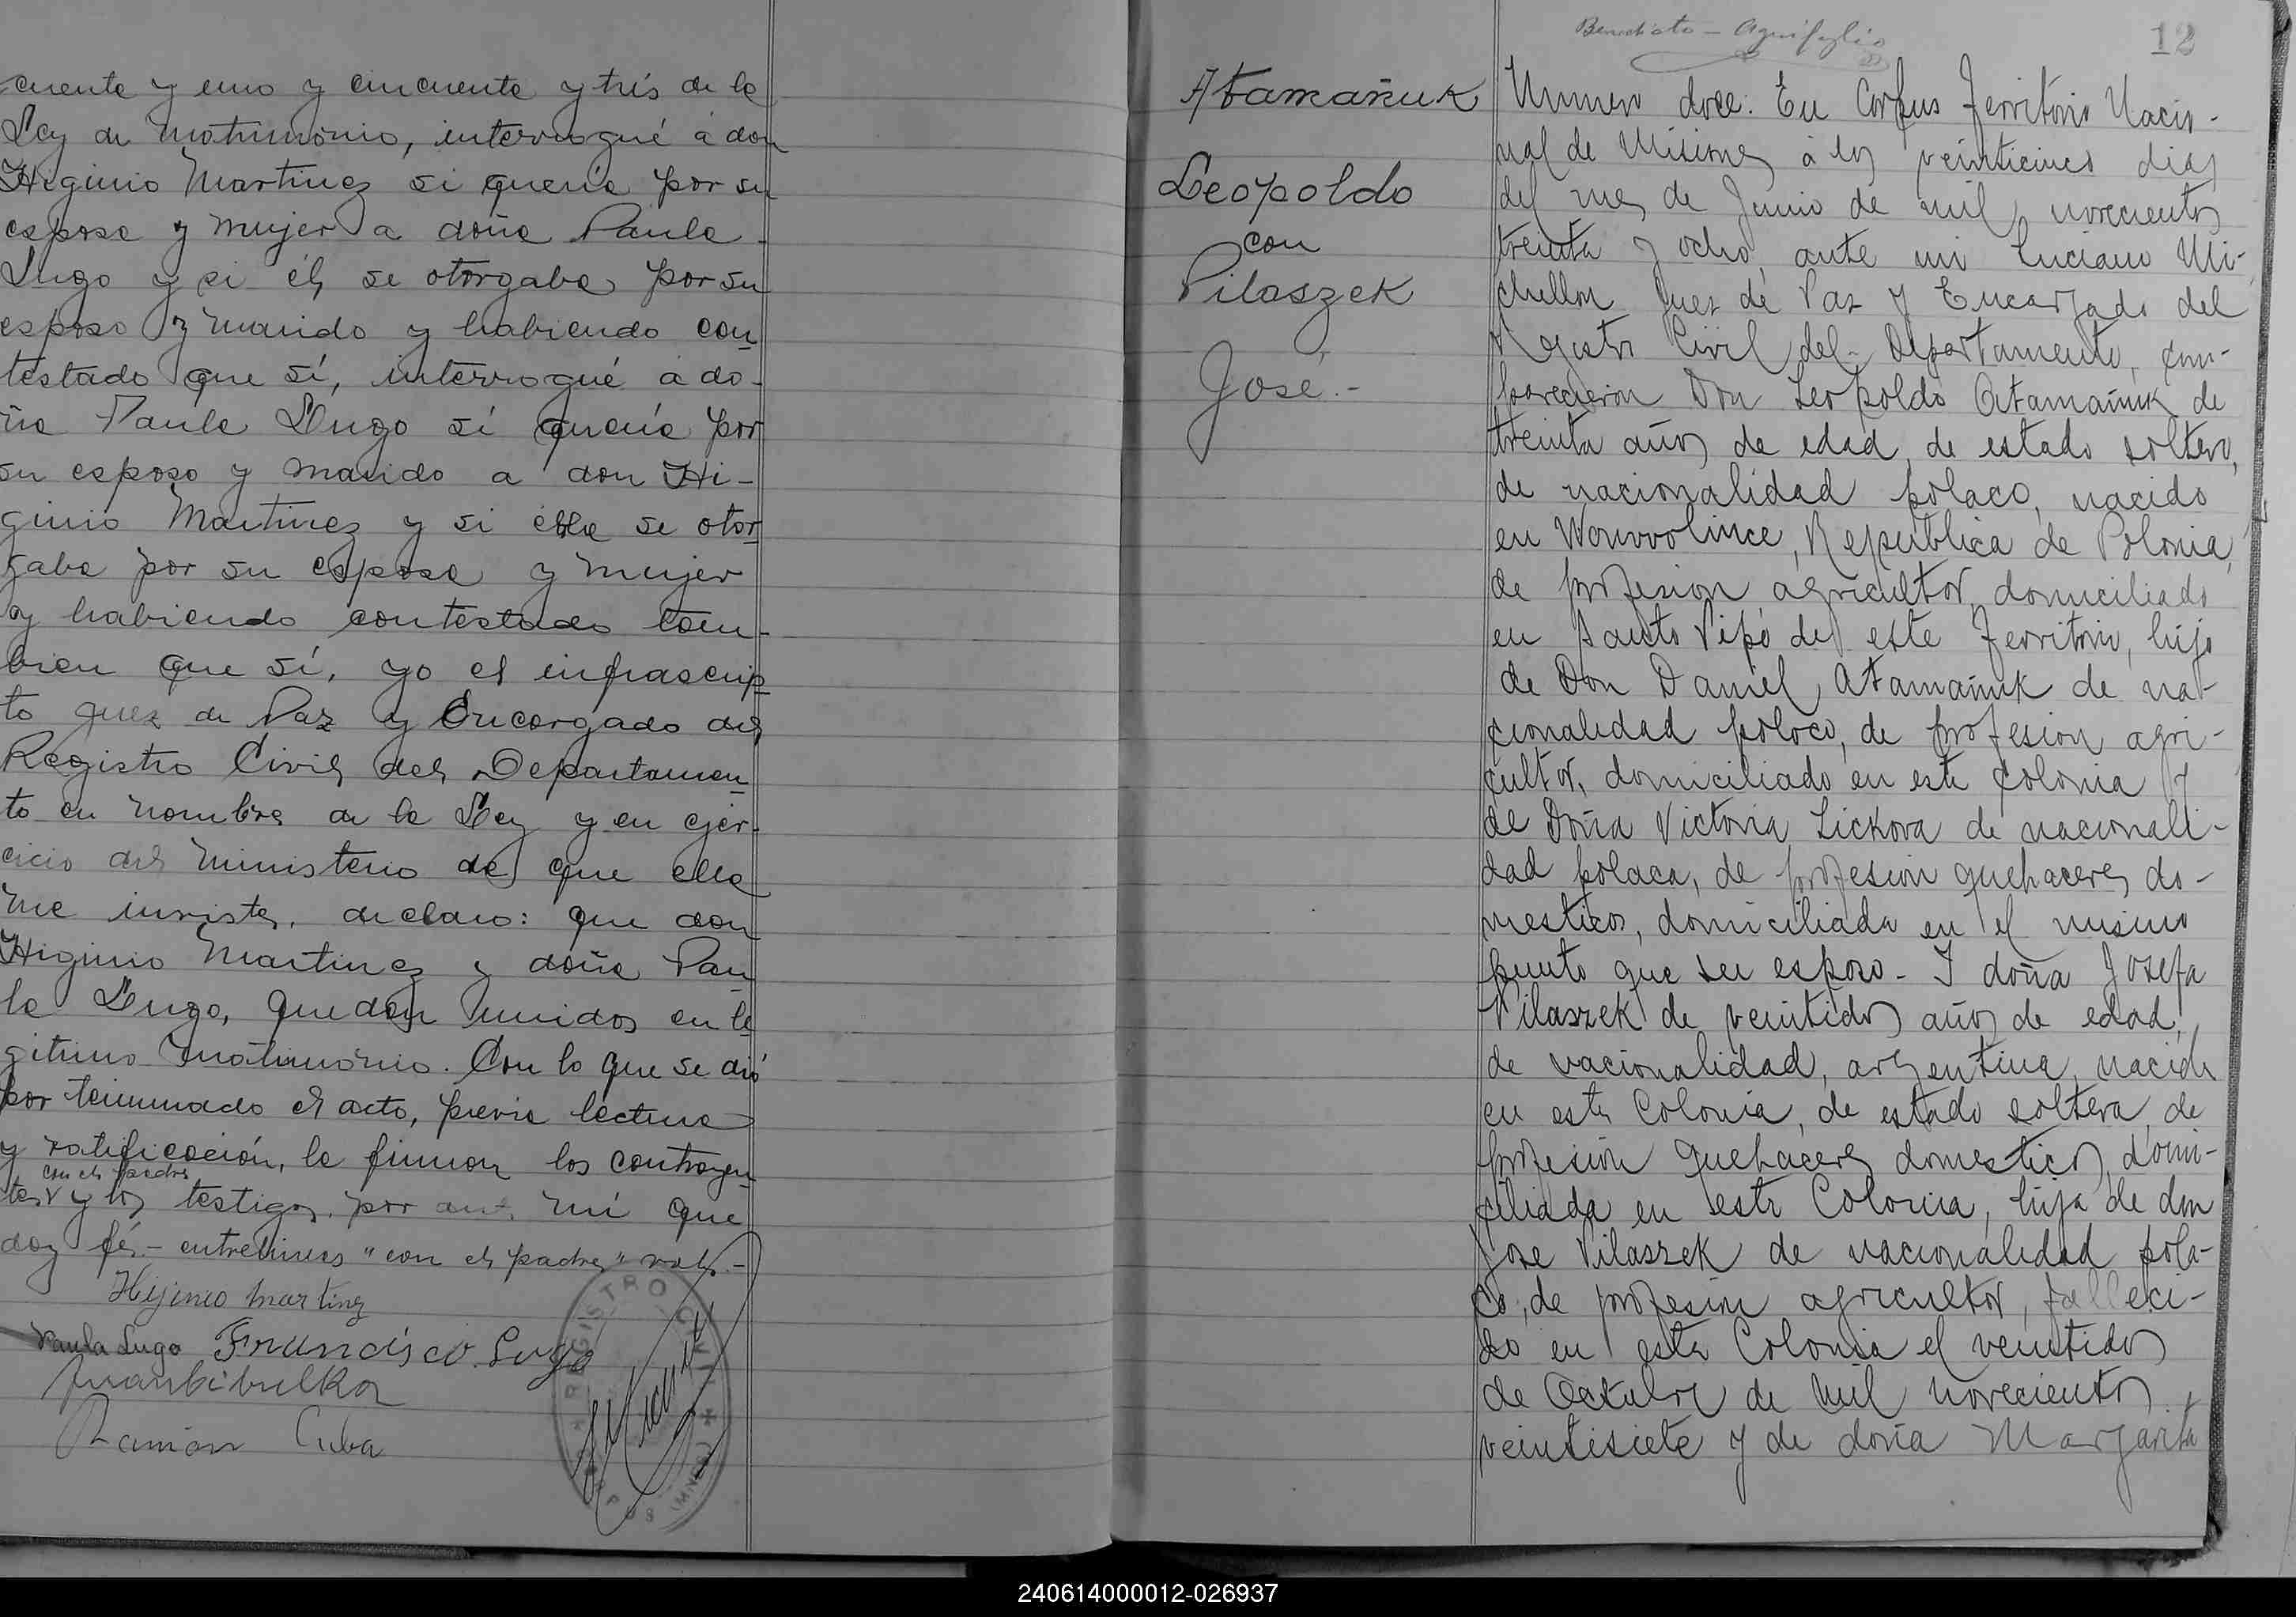 cuenta y uno y cincuenta y trés de la
Ley de Matrimonio, interrogué á don
Higinio Martinez si queria por su
esposa y mujer a doña Paula
Lugo y si él se otorgaba por su
esposo y marido y habiendo con
testado que sí, interrogué a do-
ña Paula Lugo si queria por
su esposo y marido a don Hi-
ginio Martinez y si ella se otor
gaba por su esposa y mujer
y habiendo contestado tam-
bien que sí, yo el infrascrip
to Juez de Paz y Encargado del
Registro Civil del Departamen
to en nombre de la Ley y en ejer-
cicio del Ministerio de que ella
me inviste, declaro: que don
Higinio Martinez y doña Pau
la Lugo, quedan unidos en le
gitimo matrimonio. Con lo que se dió
por terminado el acto, previa lectura
y ratificación, la firman los contrayen
con el padre
tes y los testigos, por ante mí que
doy fé.- entrelineas "con el padre" vale.-
Hijinio Martinez
Paula Lugo Francisco Lugo
Ramón Cuba
REGISTRO CIVIL
12
Atamañuk
Leopoldo
con
Pilaszek
José.-
Numero doce: En Corpus Territorio Nacio-
nal de Misiones á los veinticinco dias
del mes de Junio de mil novecientos
treinta y ocho, ante mi Luciano Mi-
chellon Juez de Paz y Encargado del
Registro Civil del Departamento, com-
parecieron Don Leopoldo Atamañuk de
treinta años de edad, de estado soltero,
de nacionalidad polaco, nacido
en Wouvvolince, Republica de Polonia,
de profesion agricultor, domiciliado
en Santo Pipó de este Territorio, hijo
de Don Daniel Atamañuk de na-
cionalidad poloco, de profesion agri-
cultor, domiciliado en esta Colonia y
de Doña Victoria Lickova de nacionali-
dad polaca, de profesion quehaceres do-
mesticos, domiciliada en el mismo
punto que su esposo - I doña Josefa
Pilaszek de veintidos años de edad,
de nacionalidad, argentina, nacida
en esta Colonia, de estado soltera, de
profesión quehaceres domesticos, domi-
ciliada en esta Colonia, hija de don
Jose Pilaszek de nacionalidad pola-
co, de profesion agricultor, falleci-
do en esta Colonia el veintidos
de Octubre de mil novecientos
veintisiete y de doña Margarita
240614000012-026937